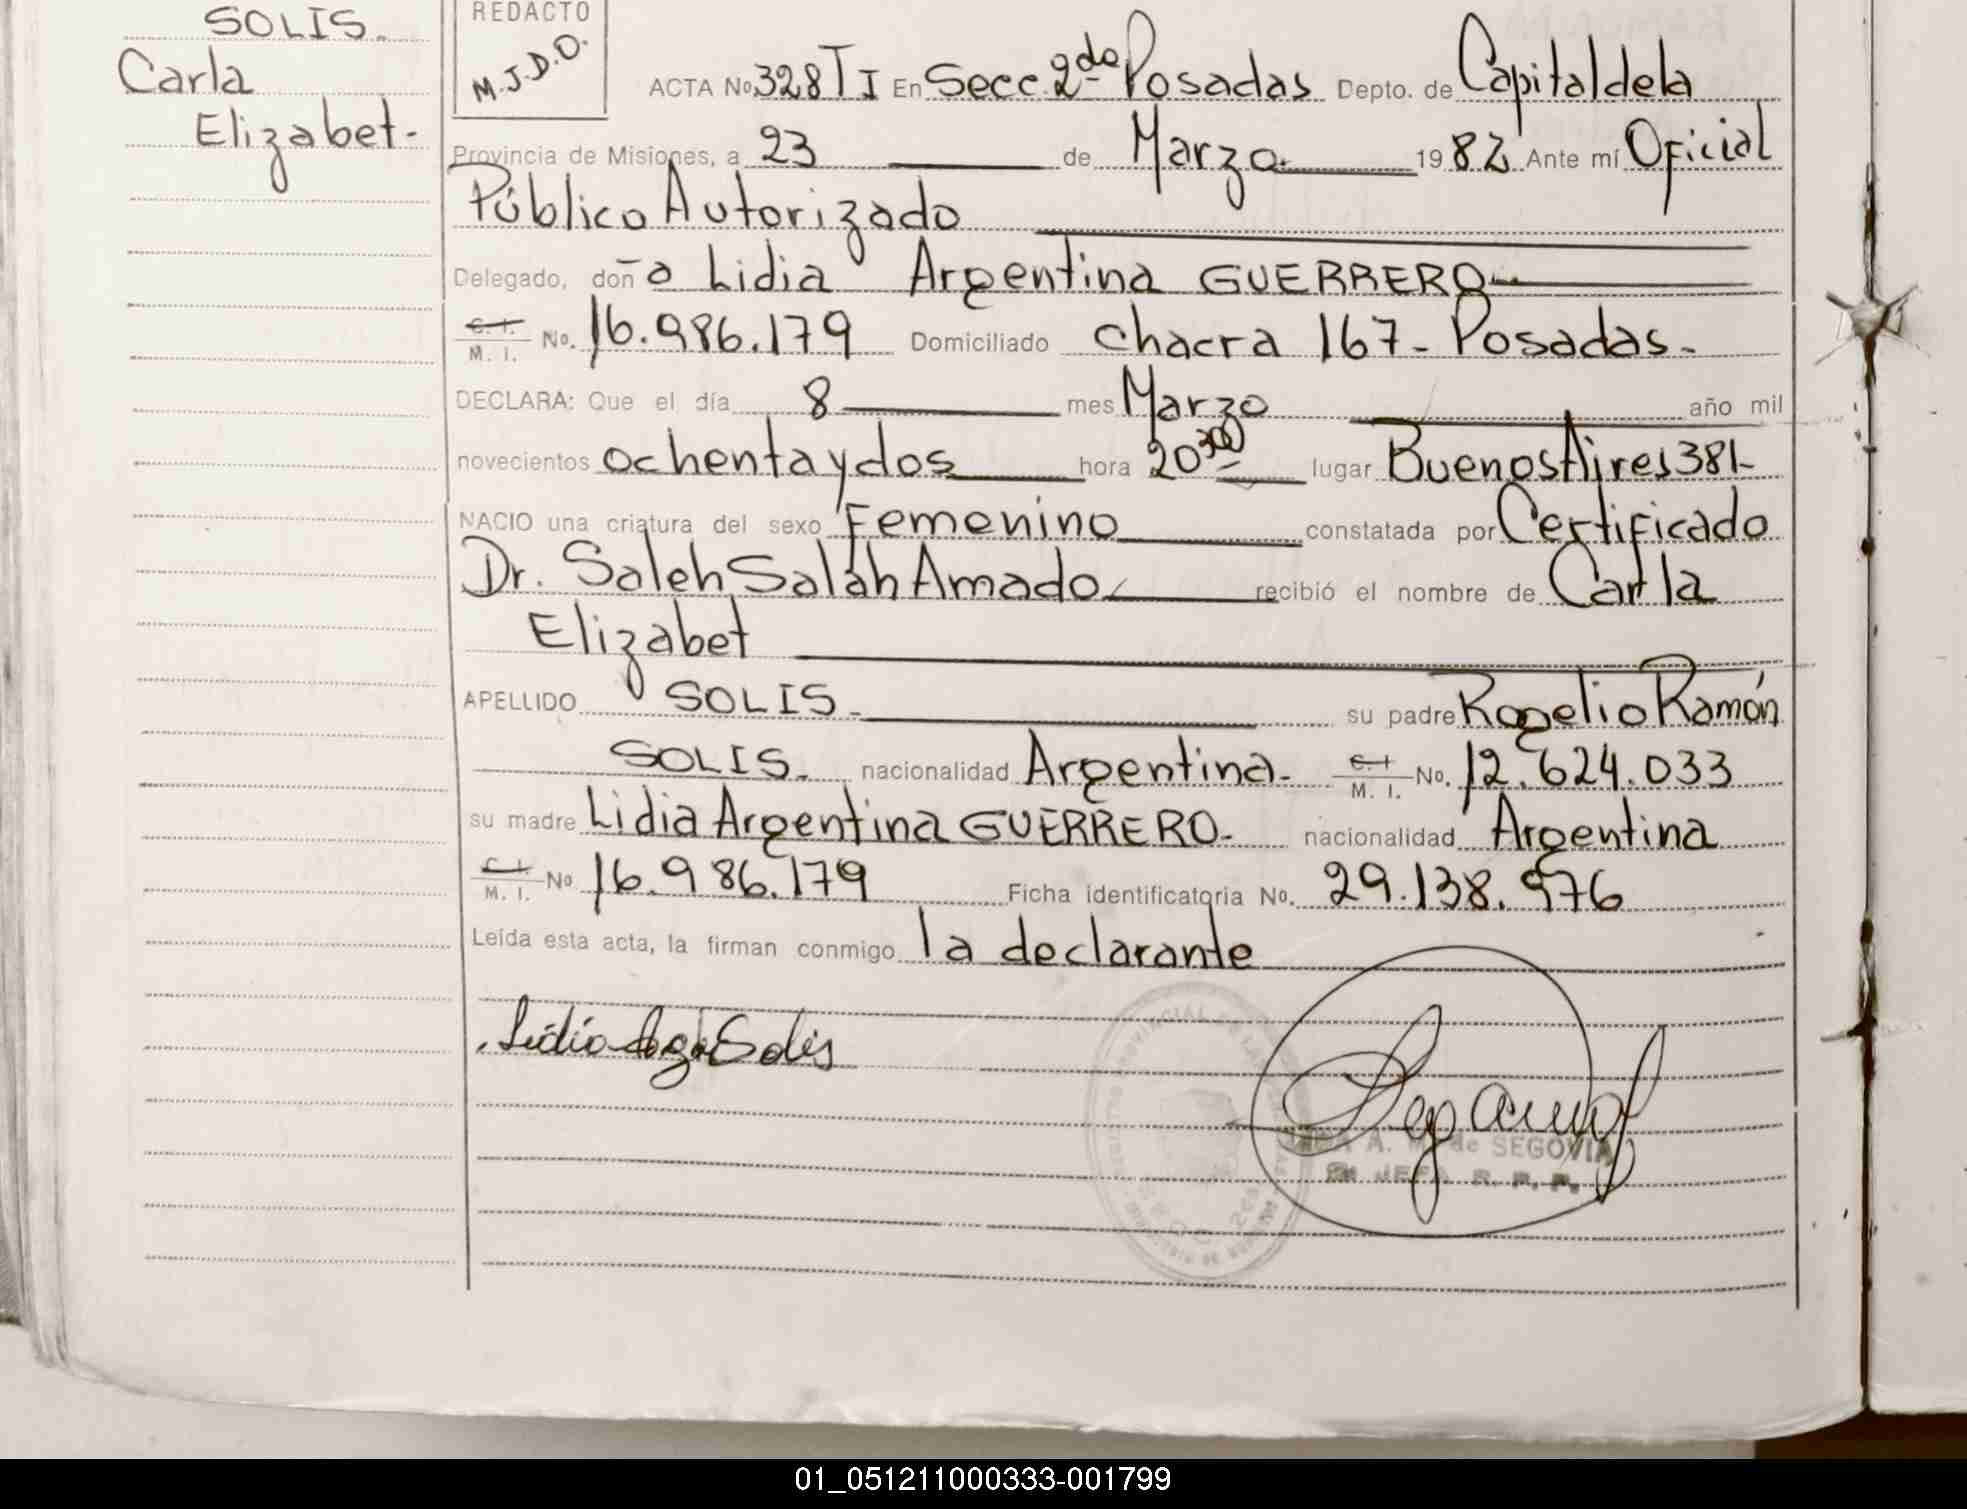 SOLIS.
Carla
Elizabet.
REDACTO
M.J.D.O.
ACTA No. 328 T I En Secc. 2da Posadas Depto. de Capital de la
Provincia de Misiones, a 23 de Marzo 1982 Ante mí Oficial
Público Autorizado
Delegado, doña Lidia Argentina GUERRERO
C. I. M. I. No. 16.986.179 Domiciliado chacra 167 - Posadas.
DECLARA: Que el día 8 mes Marzo año mil
novecientos ochenta y dos hora 20 30 lugar Buenos Aires 381-
NACIO una criatura del sexo Femenino constatada por Certificado
Dr. Saleh Salah Amado recibió el nombre de Carla
Elizabet
APELLIDO SOLIS. su padre Rogelio Ramón
SOLIS. nacionalidad Argentina. C. I. M. I. No. 12.624.033
su madre Lidia Argentina GUERRERO. nacionalidad Argentina
C. I. M. I. No 16.986.179 Ficha identificatoria No. 29.138.976
Leída esta acta, la firman conmigo la declarante
Lidia Solis
A. de SEGOVIA
JEFA R. P. P.
01_051211000333-001799